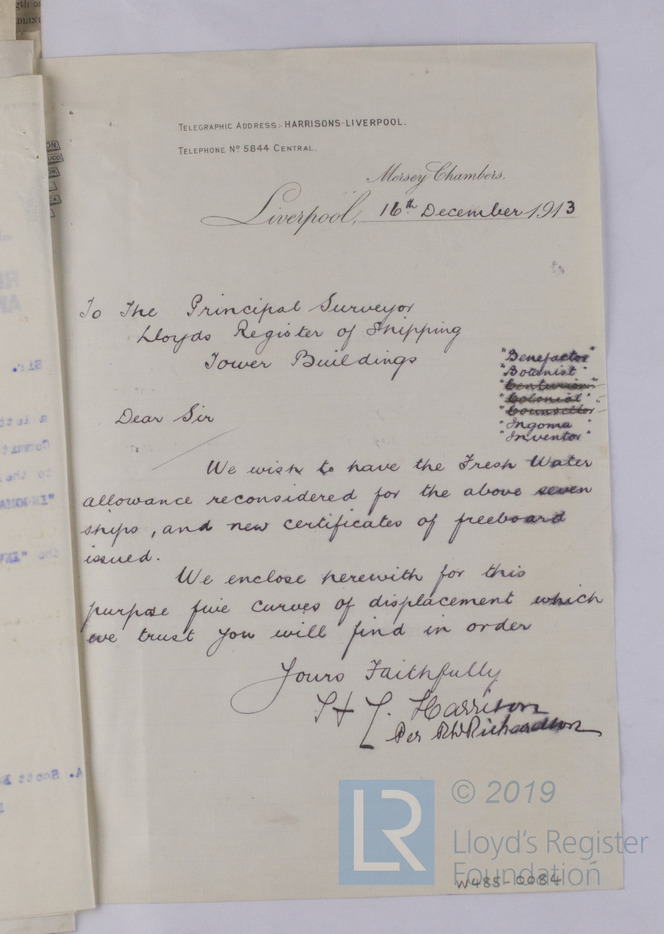 TELEGRAPHIC ADDRESS: HARRISONS-LIVERPOOL.
TELEPHONE Nº 5844 CENTRAL.
Mersey Chambers.
Liverpool, 16th December 1913
To The Principal Surveyor
Lloyds Register of Shipping
Tower Buildings
"Benefactor"
"Botanist"
"Centurion"
"Colonist"
"Counsellor"
"Ingoma"
"Inventor"
Dear Sir
We wish to have the Fresh Water
allowance reconsidered for the above seven
ships, and new certificates of freeboard
issued.
We enclose herewith for this
purpose five curves of displacement which
we trust you will find in order
Yours Faithfully
T & J. Harrison
Per RWRichardson
LR
© 2019
Lloyd's Register
Foundation
W485-0084